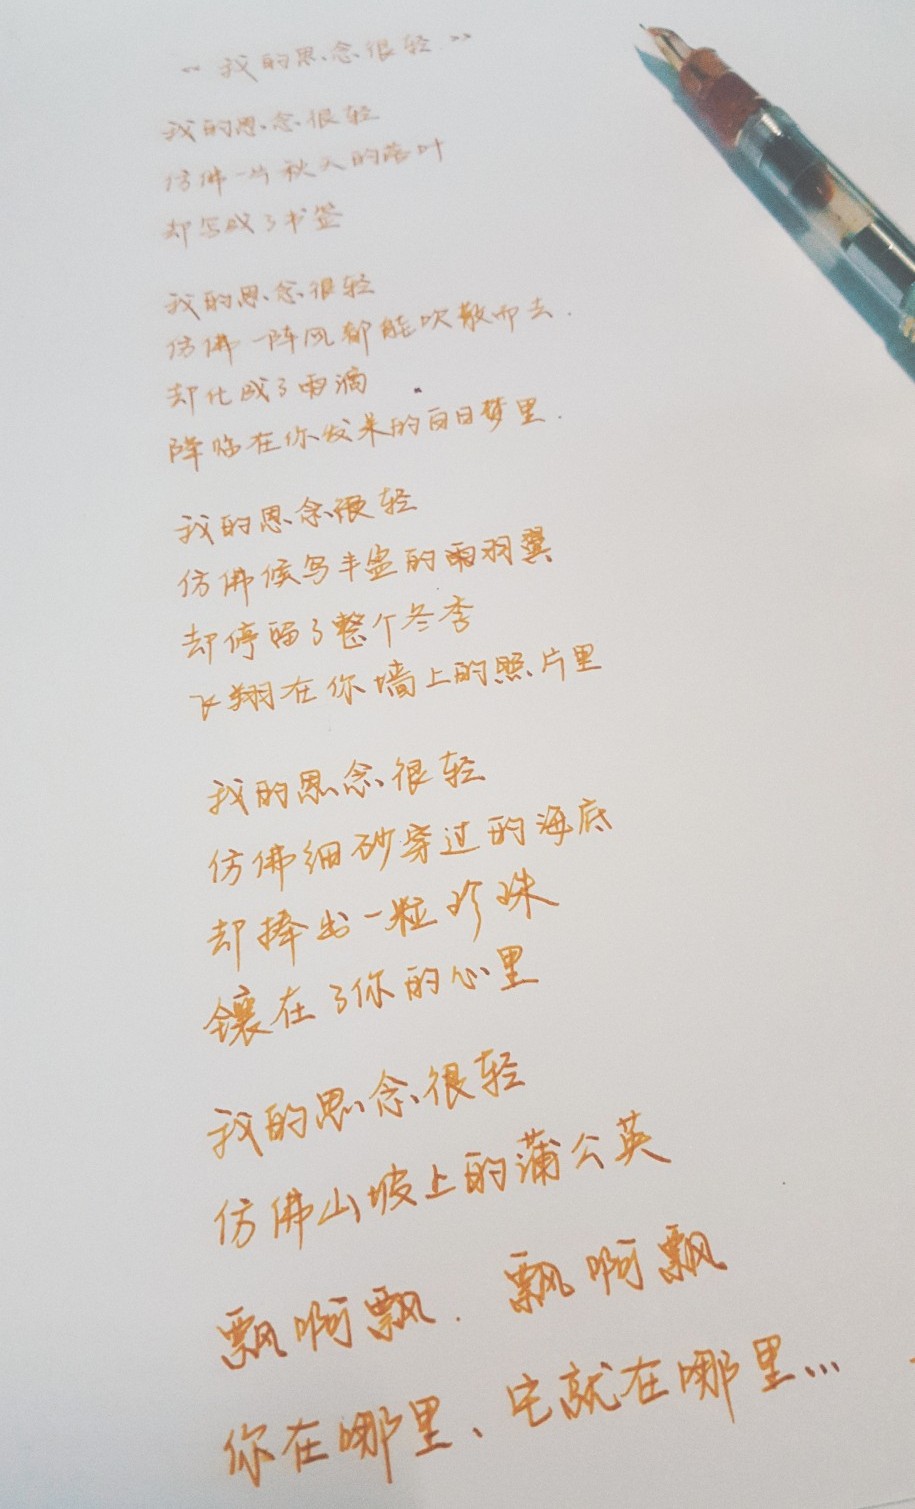 “我的思念很轻”
我的思念很轻
仿佛一片秋天的落叶
却写成了书签
我的思念很轻
仿佛一阵风都能吹散而去.
却化成了雨滴
降临在你发呆的白日梦里.
我的思念很轻
仿佛候鸟丰盈的羽翼
却停留了整个冬季
飞翔在你墙上的照片里
我的思念很轻
仿佛细砂穿过的海底
却捧出一粒珍珠
镶在了你的心里
我的思念很轻
仿佛山坡上的蒲公英
飘啊飘.飘啊飘
你在哪里、它就在哪里...